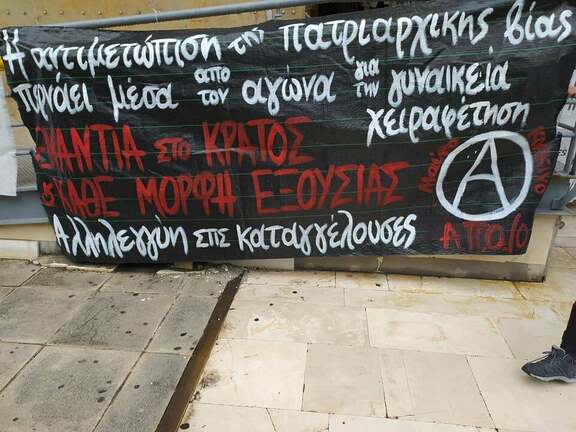 Η αντιμετώπιση της πατριαρχικής βίας
περνάει μέσα από τον αγώνα για την γυναικεία
χειραφέτηση
ΕΝΑΝΤΙΑ στο ΚΡΑΤΟΣ
& ΚΑΘΕ ΜΟΡΦΗ ΕΞΟΥΣΙΑΣ
Αλληλεγγύη στις καταγγέλουσες
Μαύρο
Α
Κόκκινο